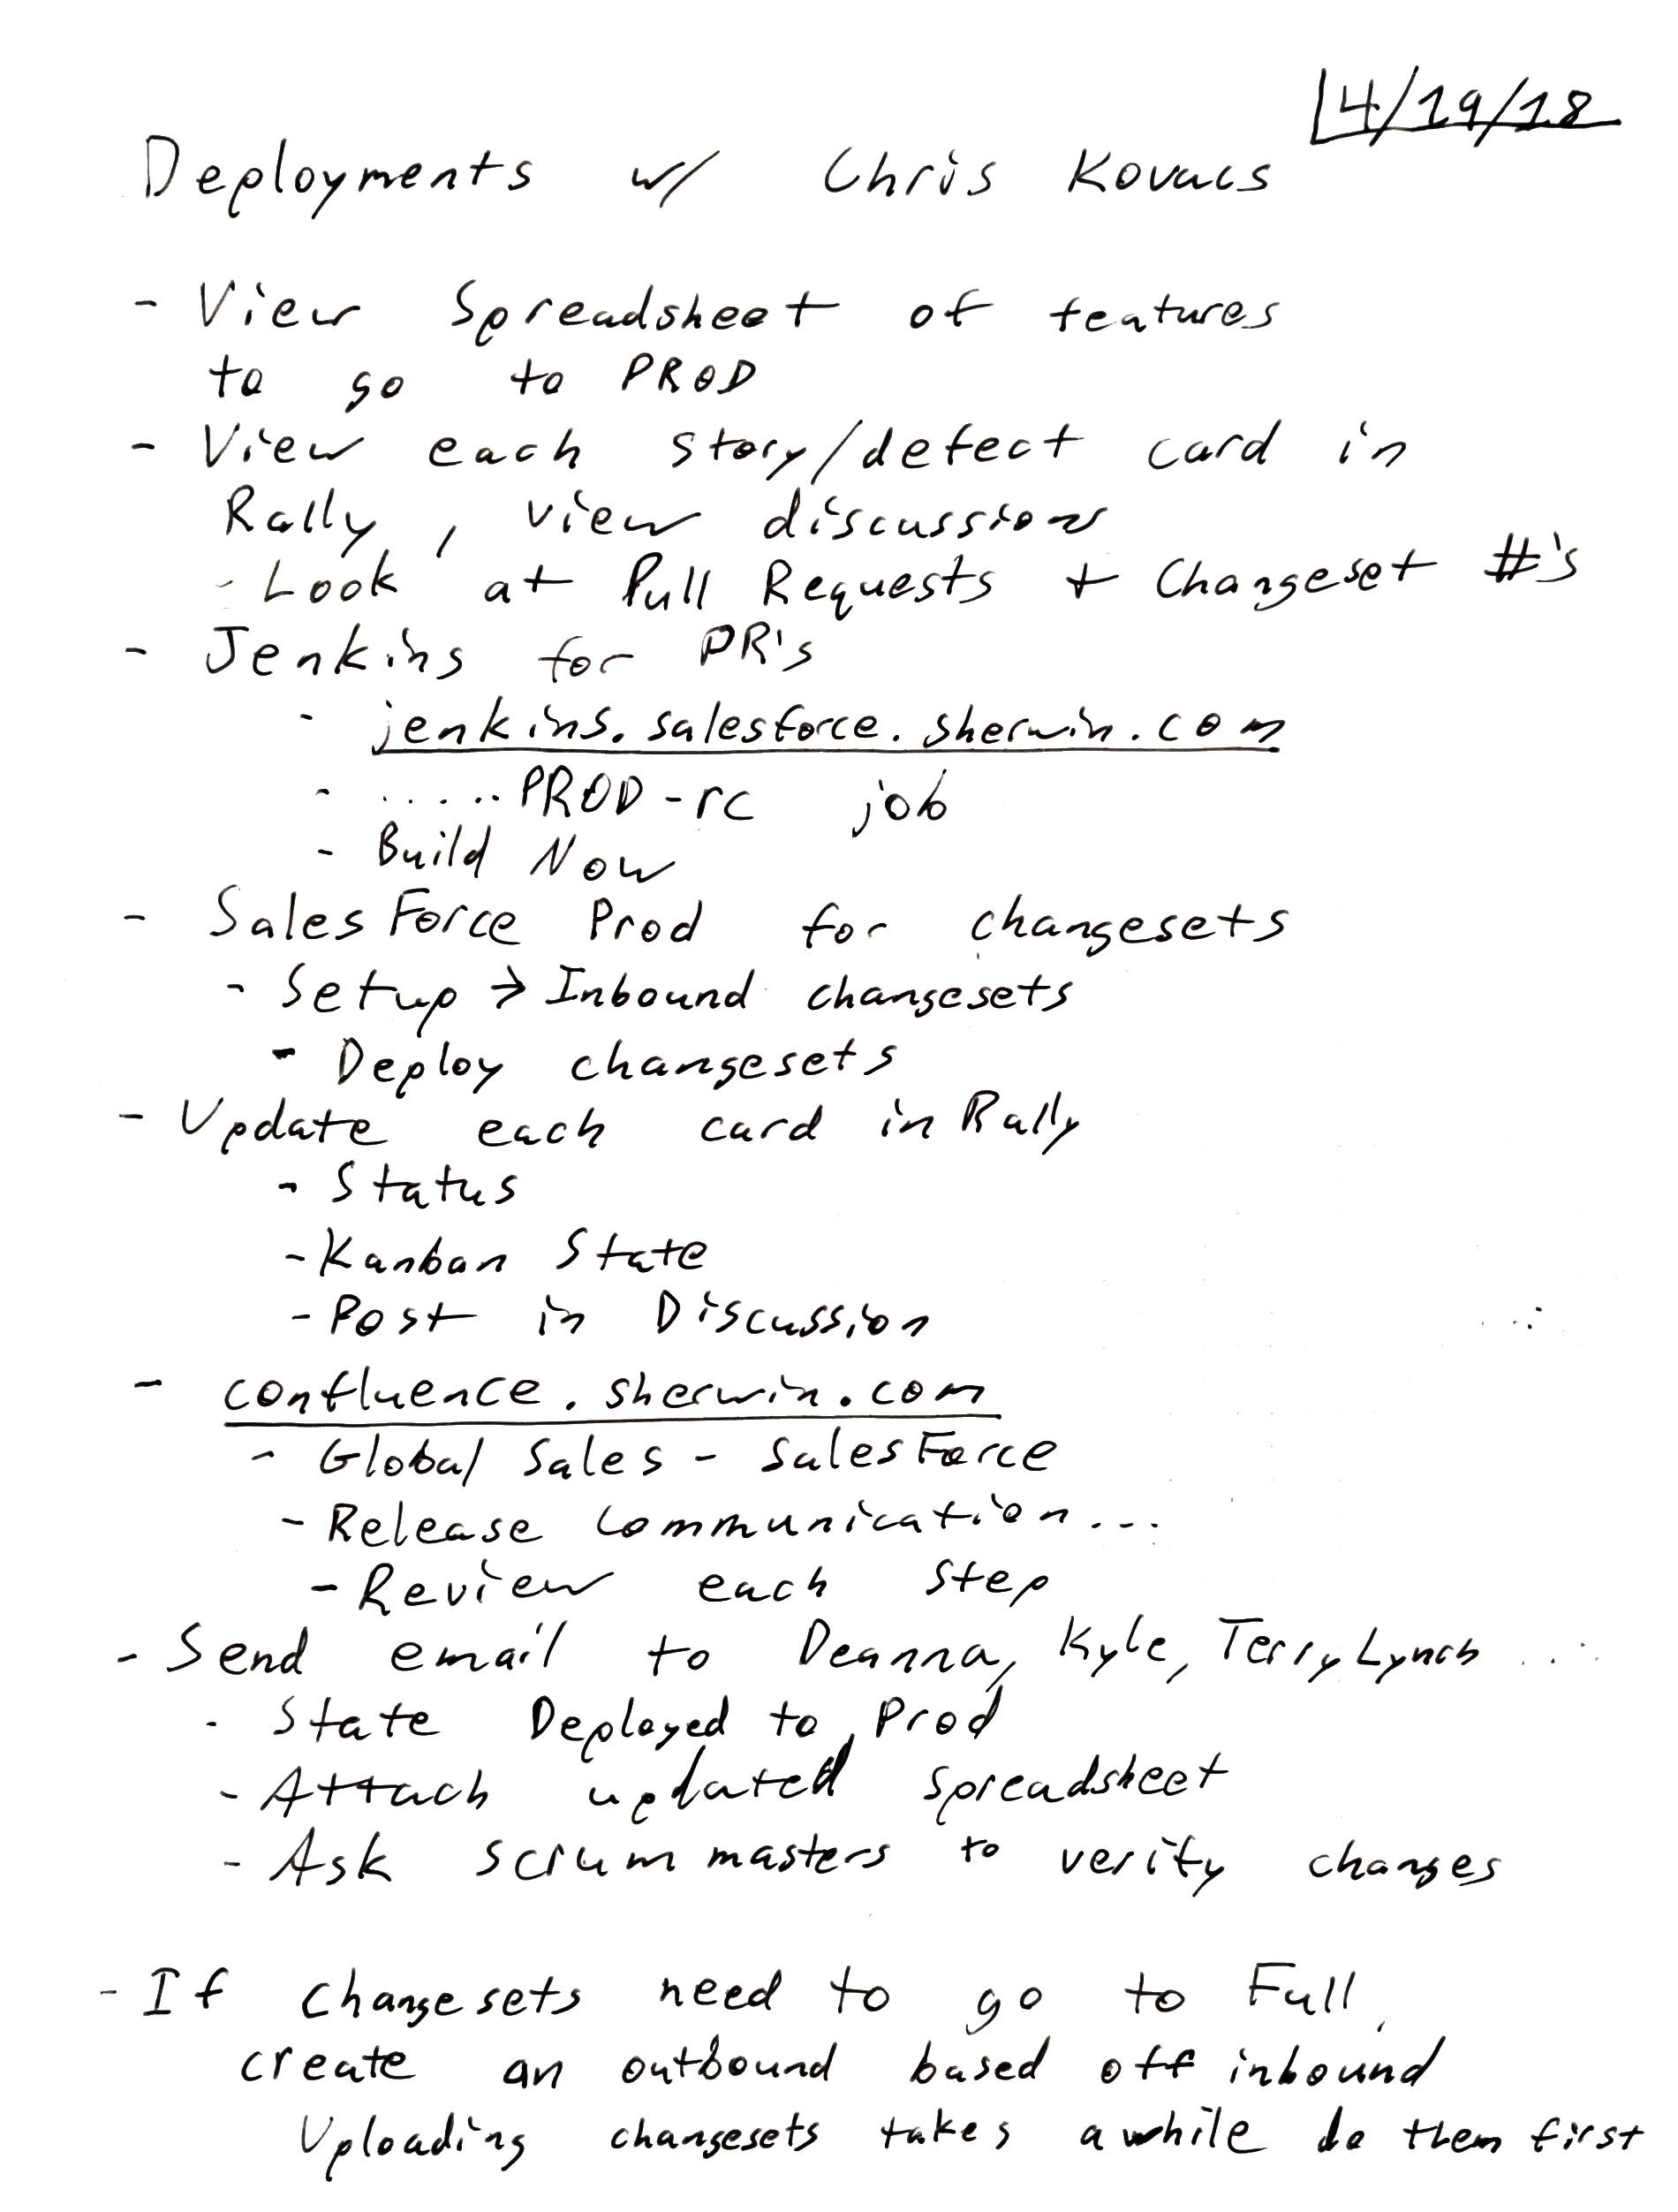 4/19/18
Deployments w/ Chris Kovacs
- View Spreadsheet of features
to go to PROD
- View each story/defect card in
Rally, view discussion
- Look at Pull Requests + Changeset #'s
- Jenkins for PR's
- jenkins.salesforce.sherwin.com
- .....PROD-rc job
- Build Now
- SalesForce Prod for changesets
- Setup → Inbound changesets
- Deploy changesets
- Update each card in Rally
- Status
- Kanban State
- Post in Discussion
- confluence.sherwin.com
- Global Sales - SalesForce
- Release Communication...
- Review each step
- Send email to Deanna, Kyle, Terry Lynch ...
- State Deployed to Prod
- Attach updated spreadsheet
- Ask scrum masters to verify changes
- If changesets need to go to Full,
create an outbound based off inbound
Uploading changesets takes awhile do them first